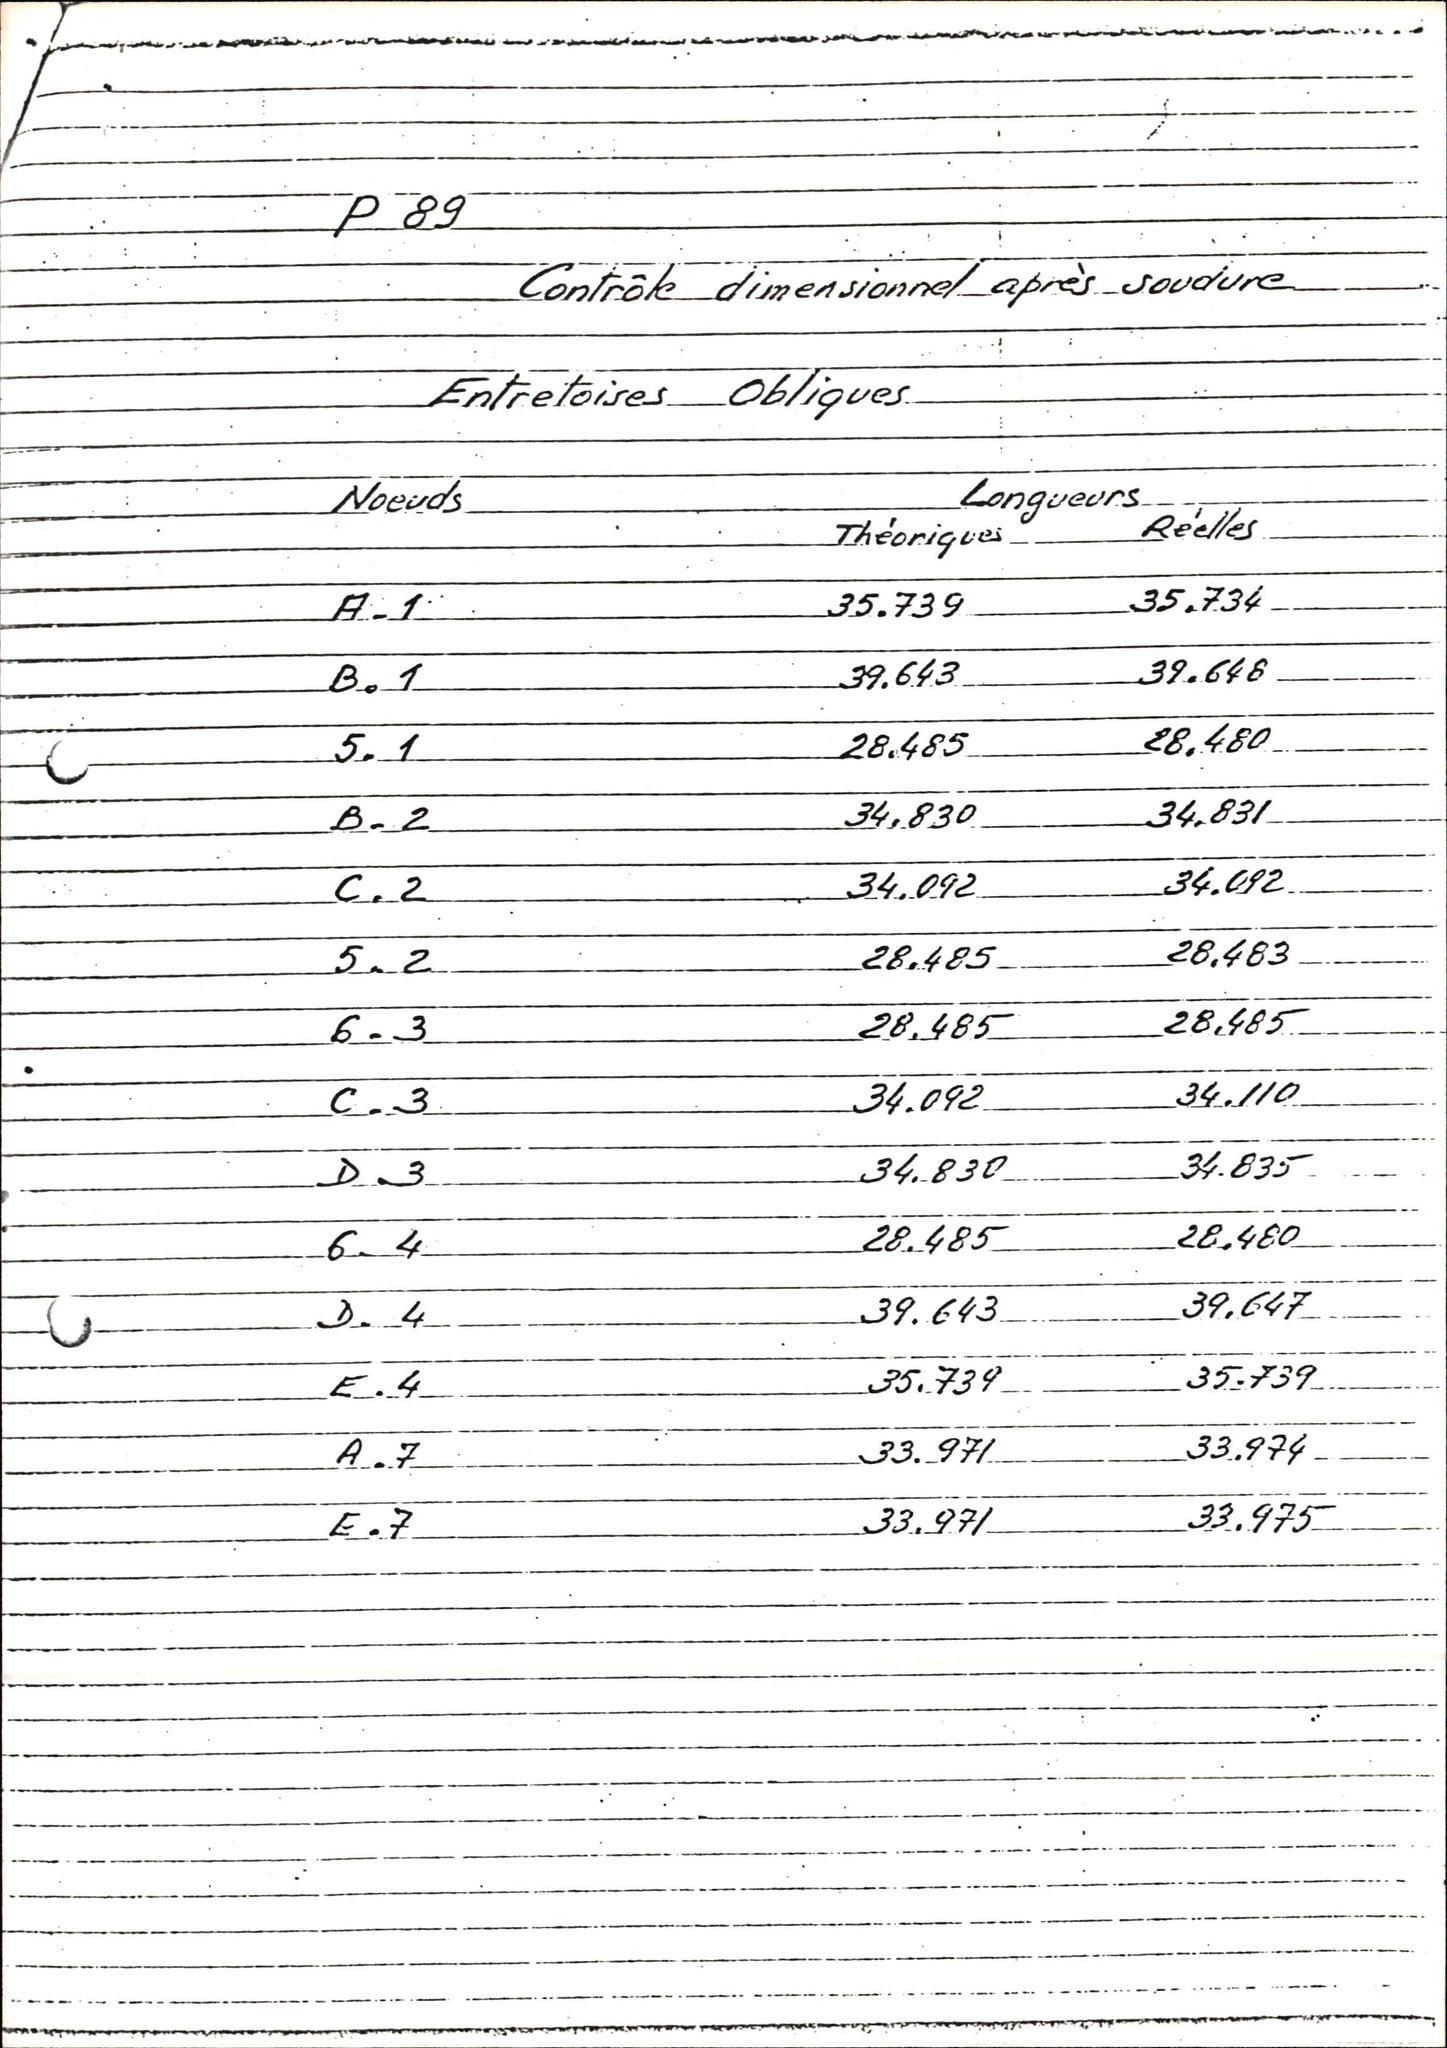 P 89
Contrôle dimensionnel après soudure
Entretoises Obliques
Noeuds Longueurs
Théoriques Réelles
A-1 35.739 35.734
B.1 39.643 39.648
5.1 28.485 28.480
B-2 34.830 34.831
C.2 34.092 34.092
5-2 28.485 28.483
6-3 28.485 28.485
C-3 34.092 34.110
D.3 34.830 34.835
6-4 28.485 28.480
D-4 39.643 39.647
E.4 35.739 35.739
A.7 33.971 33.974
E.7 33.971 33.975